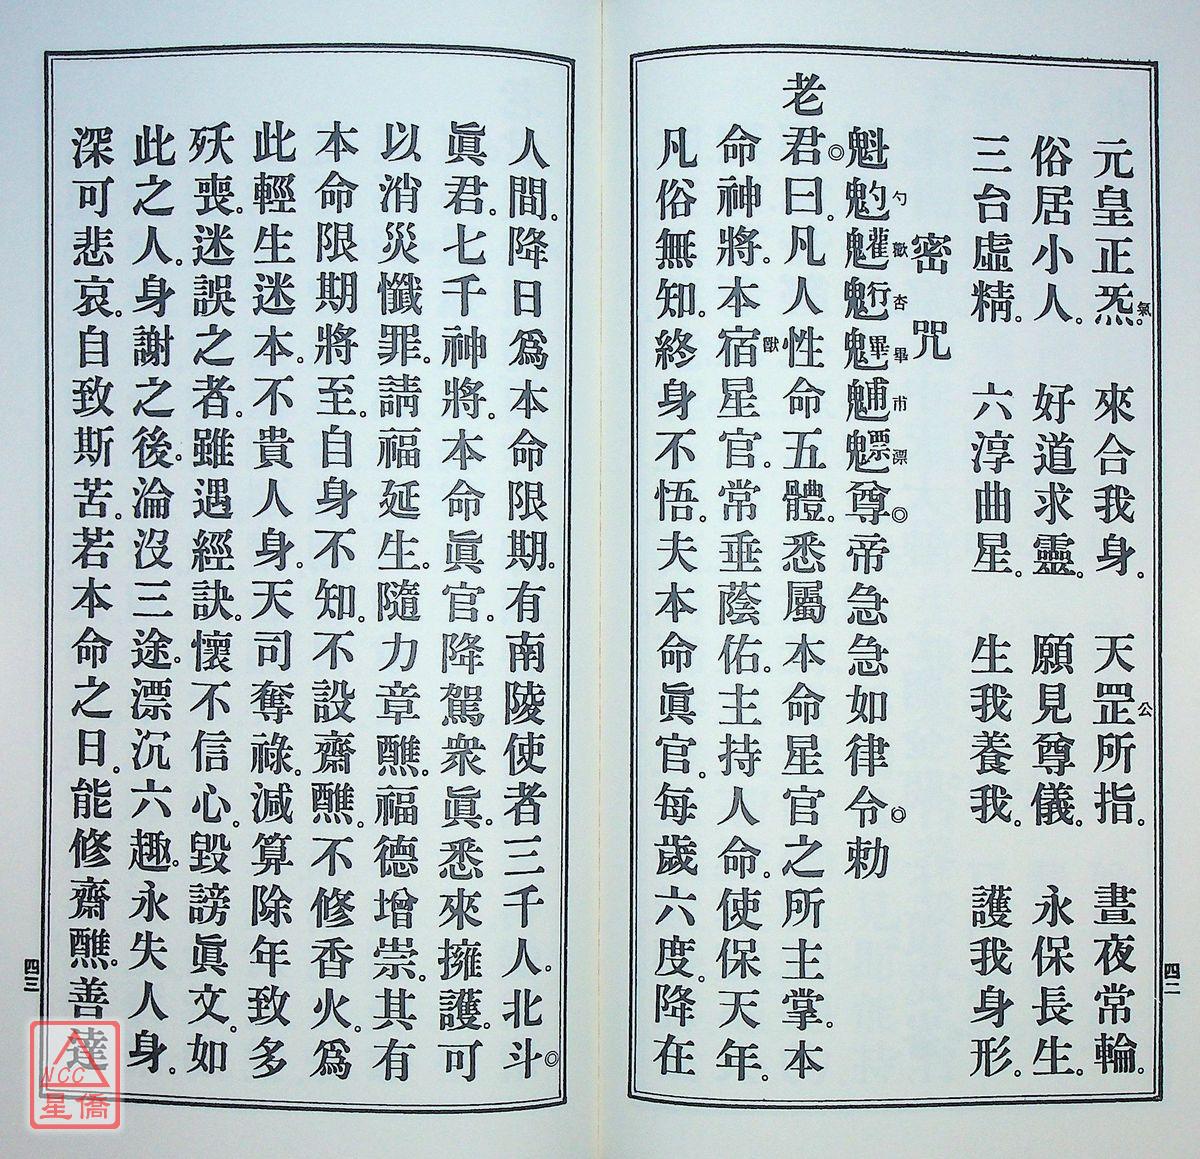 元皇正炁。氣 來合我身。 天罡公所指。 晝夜常輪。
俗居小人。 好道求靈。 願見尊儀。 永保長生。
三台虛精。 六淳曲星。 生我養我。 護我身形。
密咒
魁𩲃勺䰢歡魓杏𩵄畢魙甫魒漂尊◎帝急急如律令◎勅
老君◎曰。凡人性命五體。悉屬本命星官之所主掌。本
命神將。本宿獸星官。常垂蔭佑。主持人命。使保天年。
凡俗無知。終身不悟。夫本命眞官。每歲六度。降在
四二
人間。降日爲本命限期。有南陵使者三千人。北斗◎
眞君。七千神將。本命眞官。降駕衆眞。悉來擁護。可
以消災懺罪。請福延生。隨力章醮。福德增崇。其有
本命限期將至。自身不知。不設齋醮。不修香火。爲
此輕生迷本。不貴人身。天司奪祿。減算除年。致多
殀喪。迷誤之者。雖遇經訣。懷不信心。毀謗眞文。如
此之人。身謝之後。淪沒三途。漂沉六趣。永失人身。
深可悲哀。自致斯苦。若本命之日。能修齋醮。善達
四三
NCC
星僑